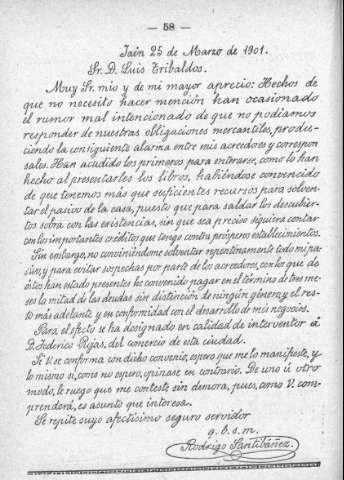 — 58 —
Jaén 25 de Marzo de 1901.
Sr. D. Luis Tribaldos.
Muy Sr. mío y de mi mayor aprecio: Hechos de
que no necesito hacer mención han ocasionado
el rumor mal intencionado de que no podíamos
responder de nuestras obligaciones mercantiles, produ-
ciendo la consiguiente alarma entre mis acreedores y correspon
sales. Han acudido los primeros para enterarse, como lo han
hecho al presentarles los libros, habiéndose convencido
de que tenemos más que suficientes recursos para solven-
tar el pasivo de la casa, puesto que para saldar los descubier-
tos sobra con las existencias, sin que sea preciso siquiera contar
con los importantes créditos que tengo contra prósperos establecimientos.
Sin embargo, no conviniéndome solventar repentinamente todo mi pa-
sivo, y para evitar sospechas por parte de los acreedores, con los que de
éstos han estado presentes he convenido pagar en el término de tres me-
ses la mitad de las deudas sin distinción de ningún género, y el res-
to más adelante y en conformidad con el desarrollo de mis negocios.
Para el efecto se ha designado en calidad de interventor á
D. Federico Rojas, del comercio de esta ciudad.
Si V. se conforma con dicho convenio, espero que me lo manifieste, y
lo mismo si, como no espero, opinase en contrario. De uno ú otro
modo, le ruego que me conteste sin demora, pues, como V. com-
prenderá, es asunto que interesa.
Se repite suyo afectísimo seguro servidor
q. b. s. m.
Rodrigo Santibáñez.